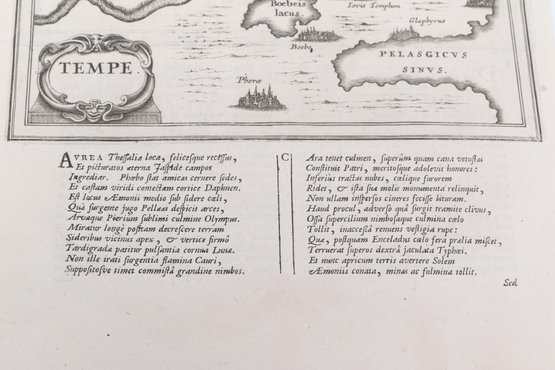 Boebeis
lacus.
Iovis Templum
Glaphyræ
Boebe
PELASGICVS
SINVS.
TEMPE.
Pheræ
AVREA Thessaliæ loca, felicesque recessus,
Et picturatos æterna Iaspide campos
Ingrediar. Phœbo stat amicas cernere sedes,
Et castam viridi contectam cortice Daphnen.
Est locus Æmonii medio sub sidere cœli,
Qua surgente jugo Pellæas despicit arces,
Arvaque Pierium sublimi culmine Olympus.
Mirator longè positam decrescere terram
Sideribus vicinus apex, & vertice firmo
Tardigrada patitur pulsantia cornua Lunæ.
Non ille irati surgentia flamina Cauri,
Suppositosve timet commistâ grandine nimbos.
C
Ara tenet culmen, superûm quam cana vetustas
Constituit Patri, meritosque adolevit honores:
Inferius tractus nubes, cœlique furorem
Ridet, & ista suæ molis monumenta relinquit,
Non ullam inspersos cineres fecisse lituram.
Haud procul, adverso quâ surgit tramite clivus,
Ossa supercilium nimbosaque culmina cœlo
Tollit, inaccessâ renuens vestigia rupe:
Qua, postquam Enceladus cœlo fera prælia miscet,
Terruerat superos dextrâ jaculata Typhœi.
Et nunc apricum terris avertere Solem
Æmoniis conata, minas ac fulmina tollit.
Sed